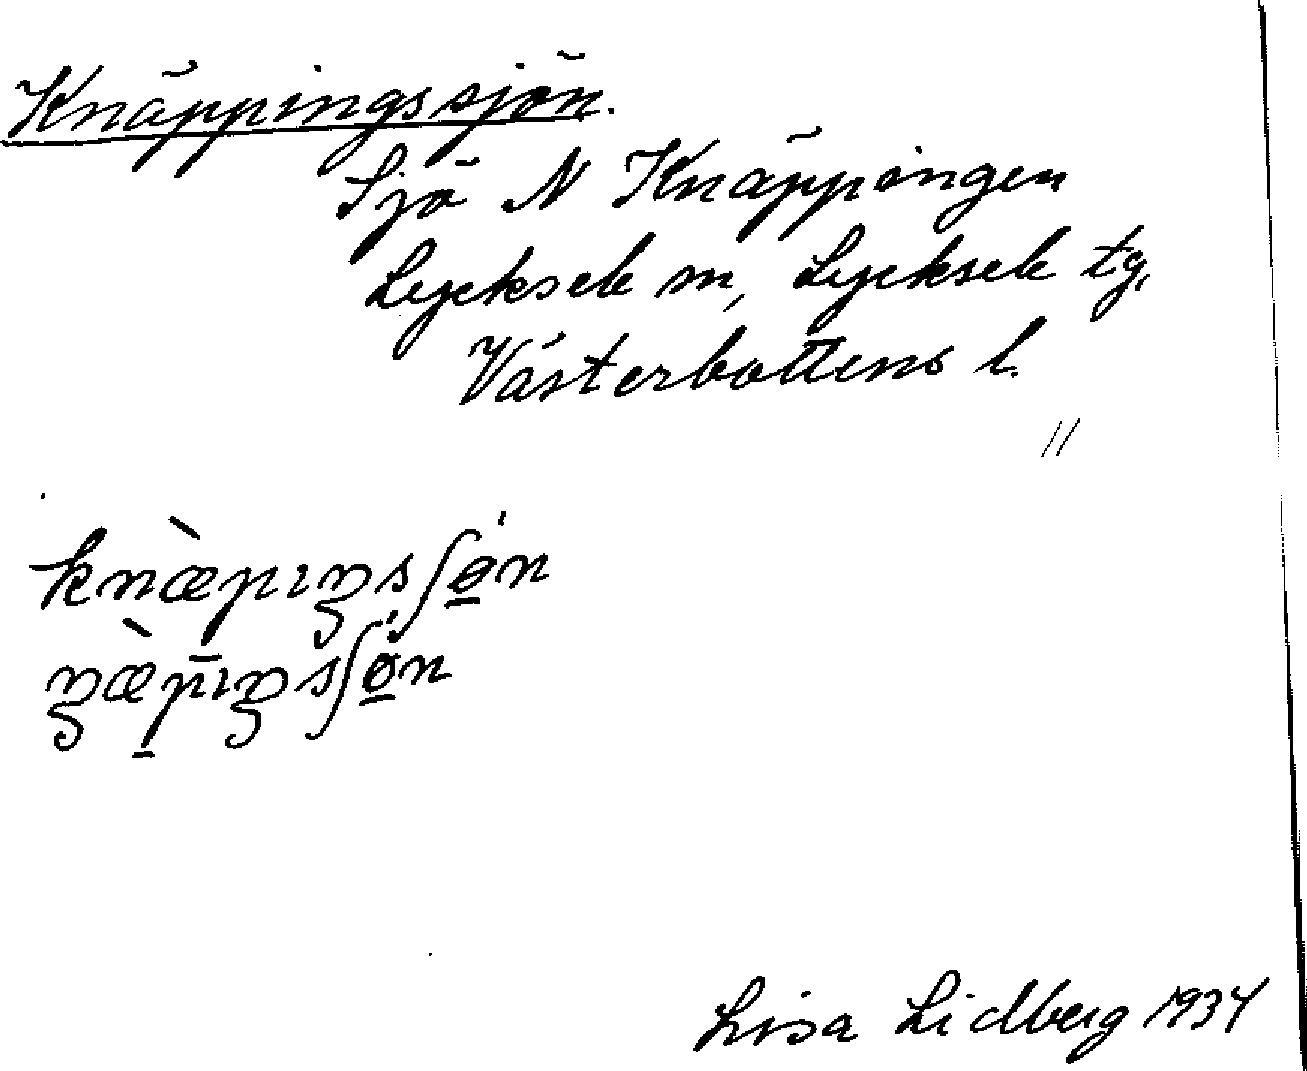 Knäppingssjön.
Sjö N Knäppingen
Lycksele sn, Lycksele tg,
Västerbottens l.
//
knæ̀pıŋsʃǿ̲n
ŋæ̀p̲̄ıŋsʃǿ̲n
Lisa Lidberg 1934